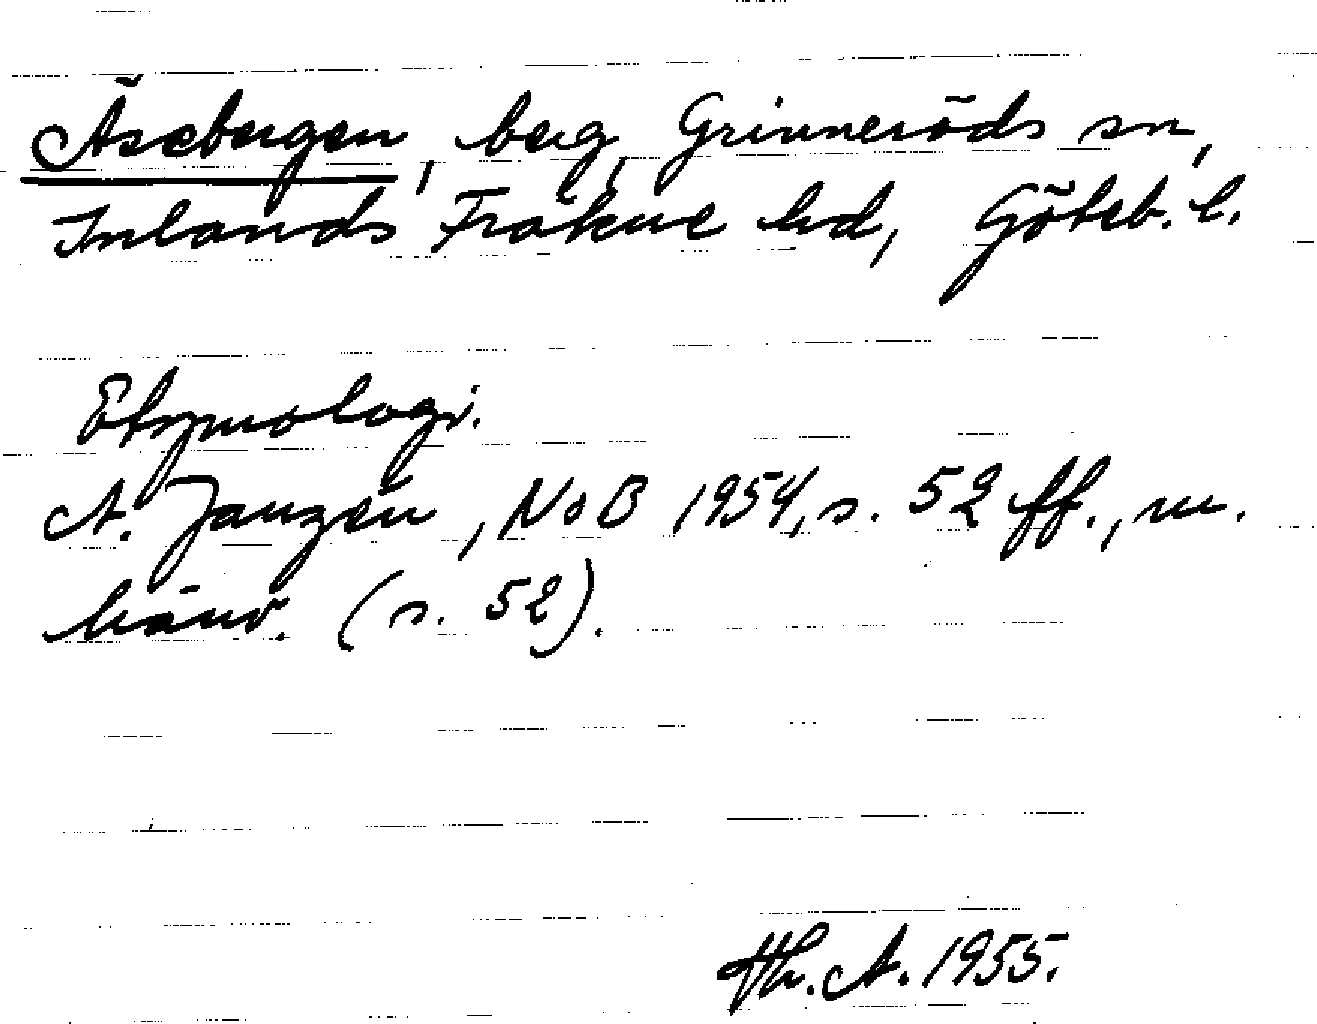 Äsebergen, berg, Grinneröds sn,
Inlands Fräkne hd, Göteb. l.
Etymologi.
A. Janzén, NoB 1954, s. 52 ff., m.
hänv. (s. 52).
Th. A. 1955.